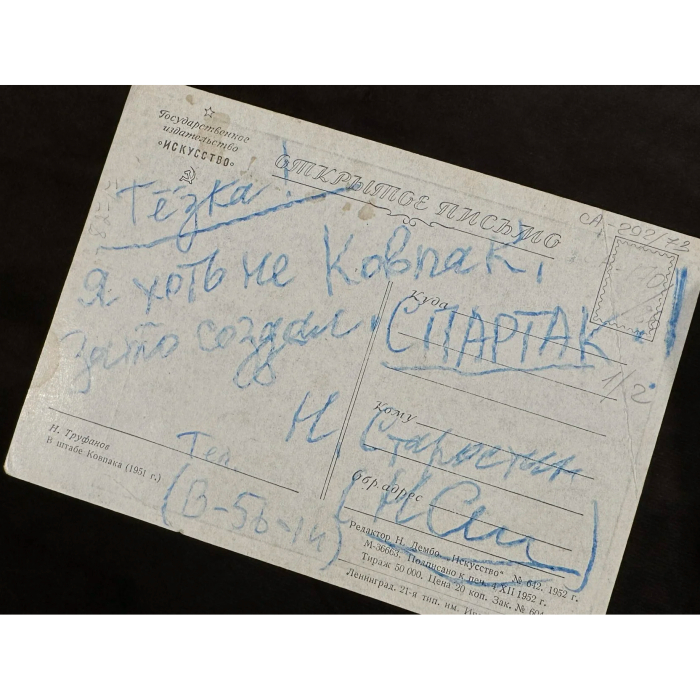 Государственное
издательство
«ИСКУССТВО»
ОТКРЫТОЕ ПИСЬМО
А-202/72
Тёзка!
Я хоть не Ковпак,
Зато создал
СПАРТАК!
1/2
Н Старостин
Тел.
Куда
Кому
Обр. адрес
Н. Труфанов
В штабе Ковпака (1951 г.)
Редактор Н. Дембо. „Искусство“ № 642. 1952 г.
М-36663. Подписано к печ. 4/XII 1952 г.
Тираж 50 000. Цена 20 коп. Зак. № 604
Ленинград. 21-я тип. им.